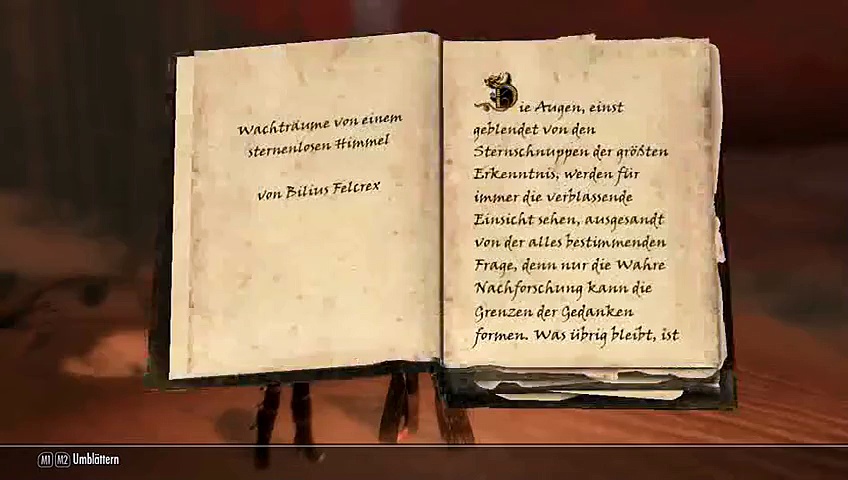 Wachträume von einem
sternenlosen Himmel
von Bilius Felcrex
Die Augen, einst
geblendet von den
Sternschnuppen der größten
Erkenntnis, werden für
immer die verblassende
Einsicht sehen, ausgesandt
von der alles bestimmenden
Frage, denn nur die Wahre
Nachforschung kann die
Grenzen der Gedanken
formen. Was übrig bleibt, ist
M1 M2 Umblättern